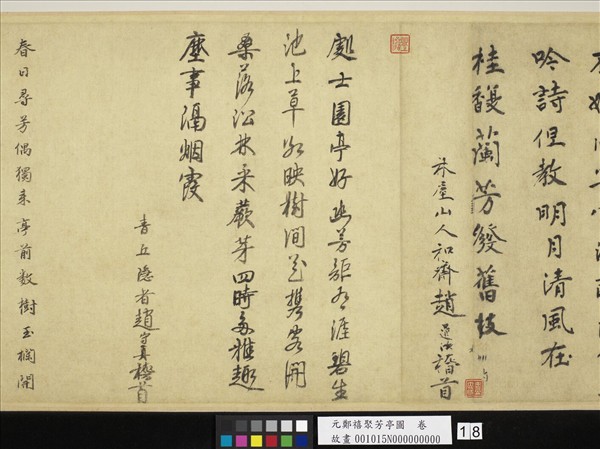 吟詩但教明月清風在
桂馥蘭芳發舊枝
林屋山人和齋趙
稽首
處士園亭好
涯碧生
池上草紅映樹間花攜客開
桑落沿林采蕨芽四時多雅趣
塵事隔烟霞
青丘隱者趙
稽首
春日尋芳偶獨來亭前數樹玉欄開
元鄭禧聚芳亭圖　卷
故畫 001015N000000000
18